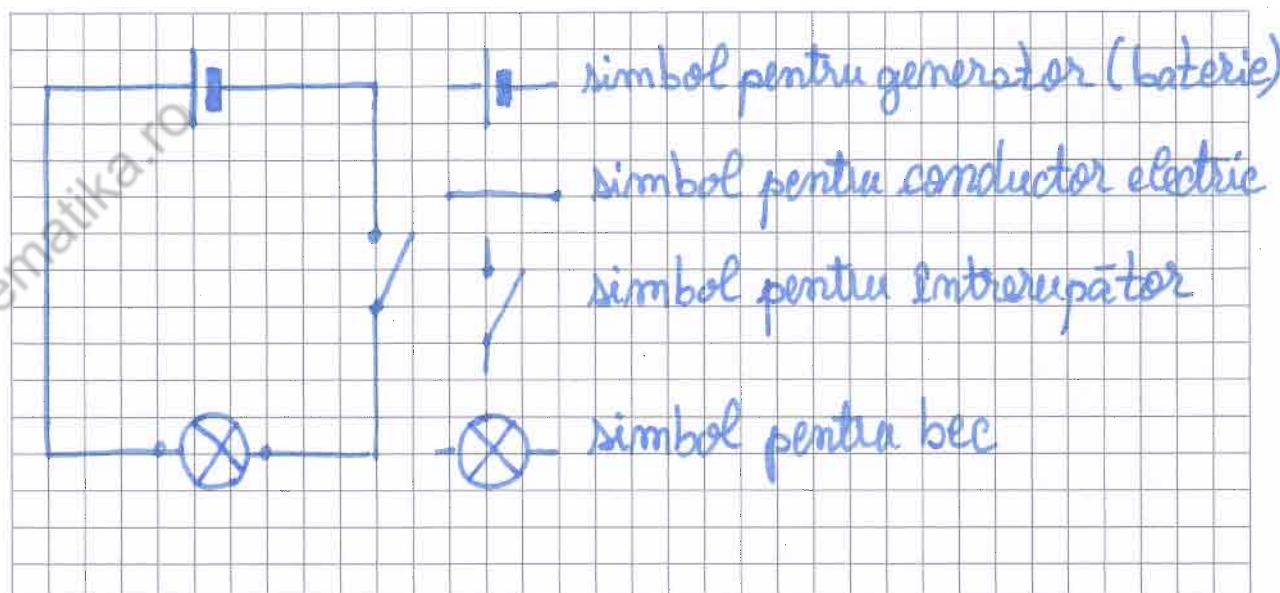 simbol pentru generator (baterie)
simbol pentru conductor electric
simbol pentru întrerupător
simbol pentru bec
ematika.ro